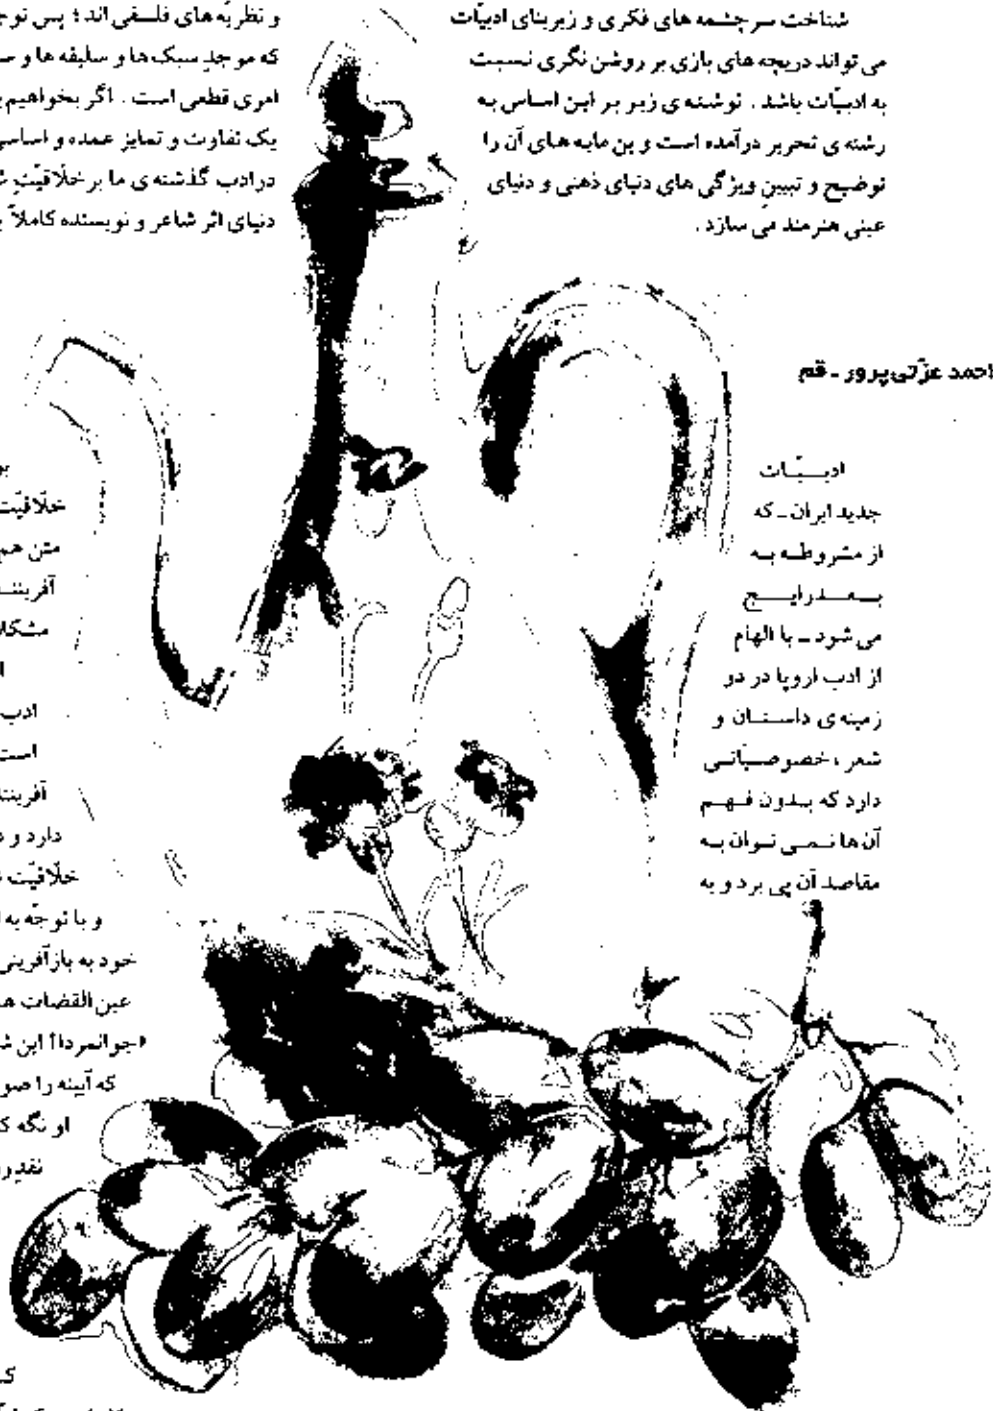 شناخت سرچشمه های فکری و زیربنای ادبیّات
می تواند دریچه های بازی بر روشن نگری نسبت
به ادبیّات باشد . نوشته ی زیر بر این اساس به
رشته ی تحریر درآمده است و بن مایه های آن را
توضیح و تبیینِ ویژگی های دنیای ذهنی و دنیای
عینی هنرمند می سازد .
احمد عزّتی پرور ـ قم
ادبیّات
جدید ایران ـ که
از مشروطه به
بعد رایج
می شود ـ با الهام
از ادب اروپا در دو
زمینه ی داستان و
شعر ، خصوصیّاتی
دارد که بدون فهم
آن ها نمی توان به
مقاصد آن پی برد و به
و نظریّه های فلسفی اند ؛ پس
که موجدِ سبک ها و سلیقه ها و
امری قطعی است . اگر بخواهیم
یک تفاوت و تمایز عمده و
در ادب گذشته ی ما بر خلّاقیّتِ
دنیای اثر شاعر و نویسنده کاملاً
خلّاقیّت
متن هم
ادب
است
دارد و
خلّاقیّت
و با توجّه به
خود به بازآفرینی
عین القضات
«جوانمردا! این
که آینه را
او نگه